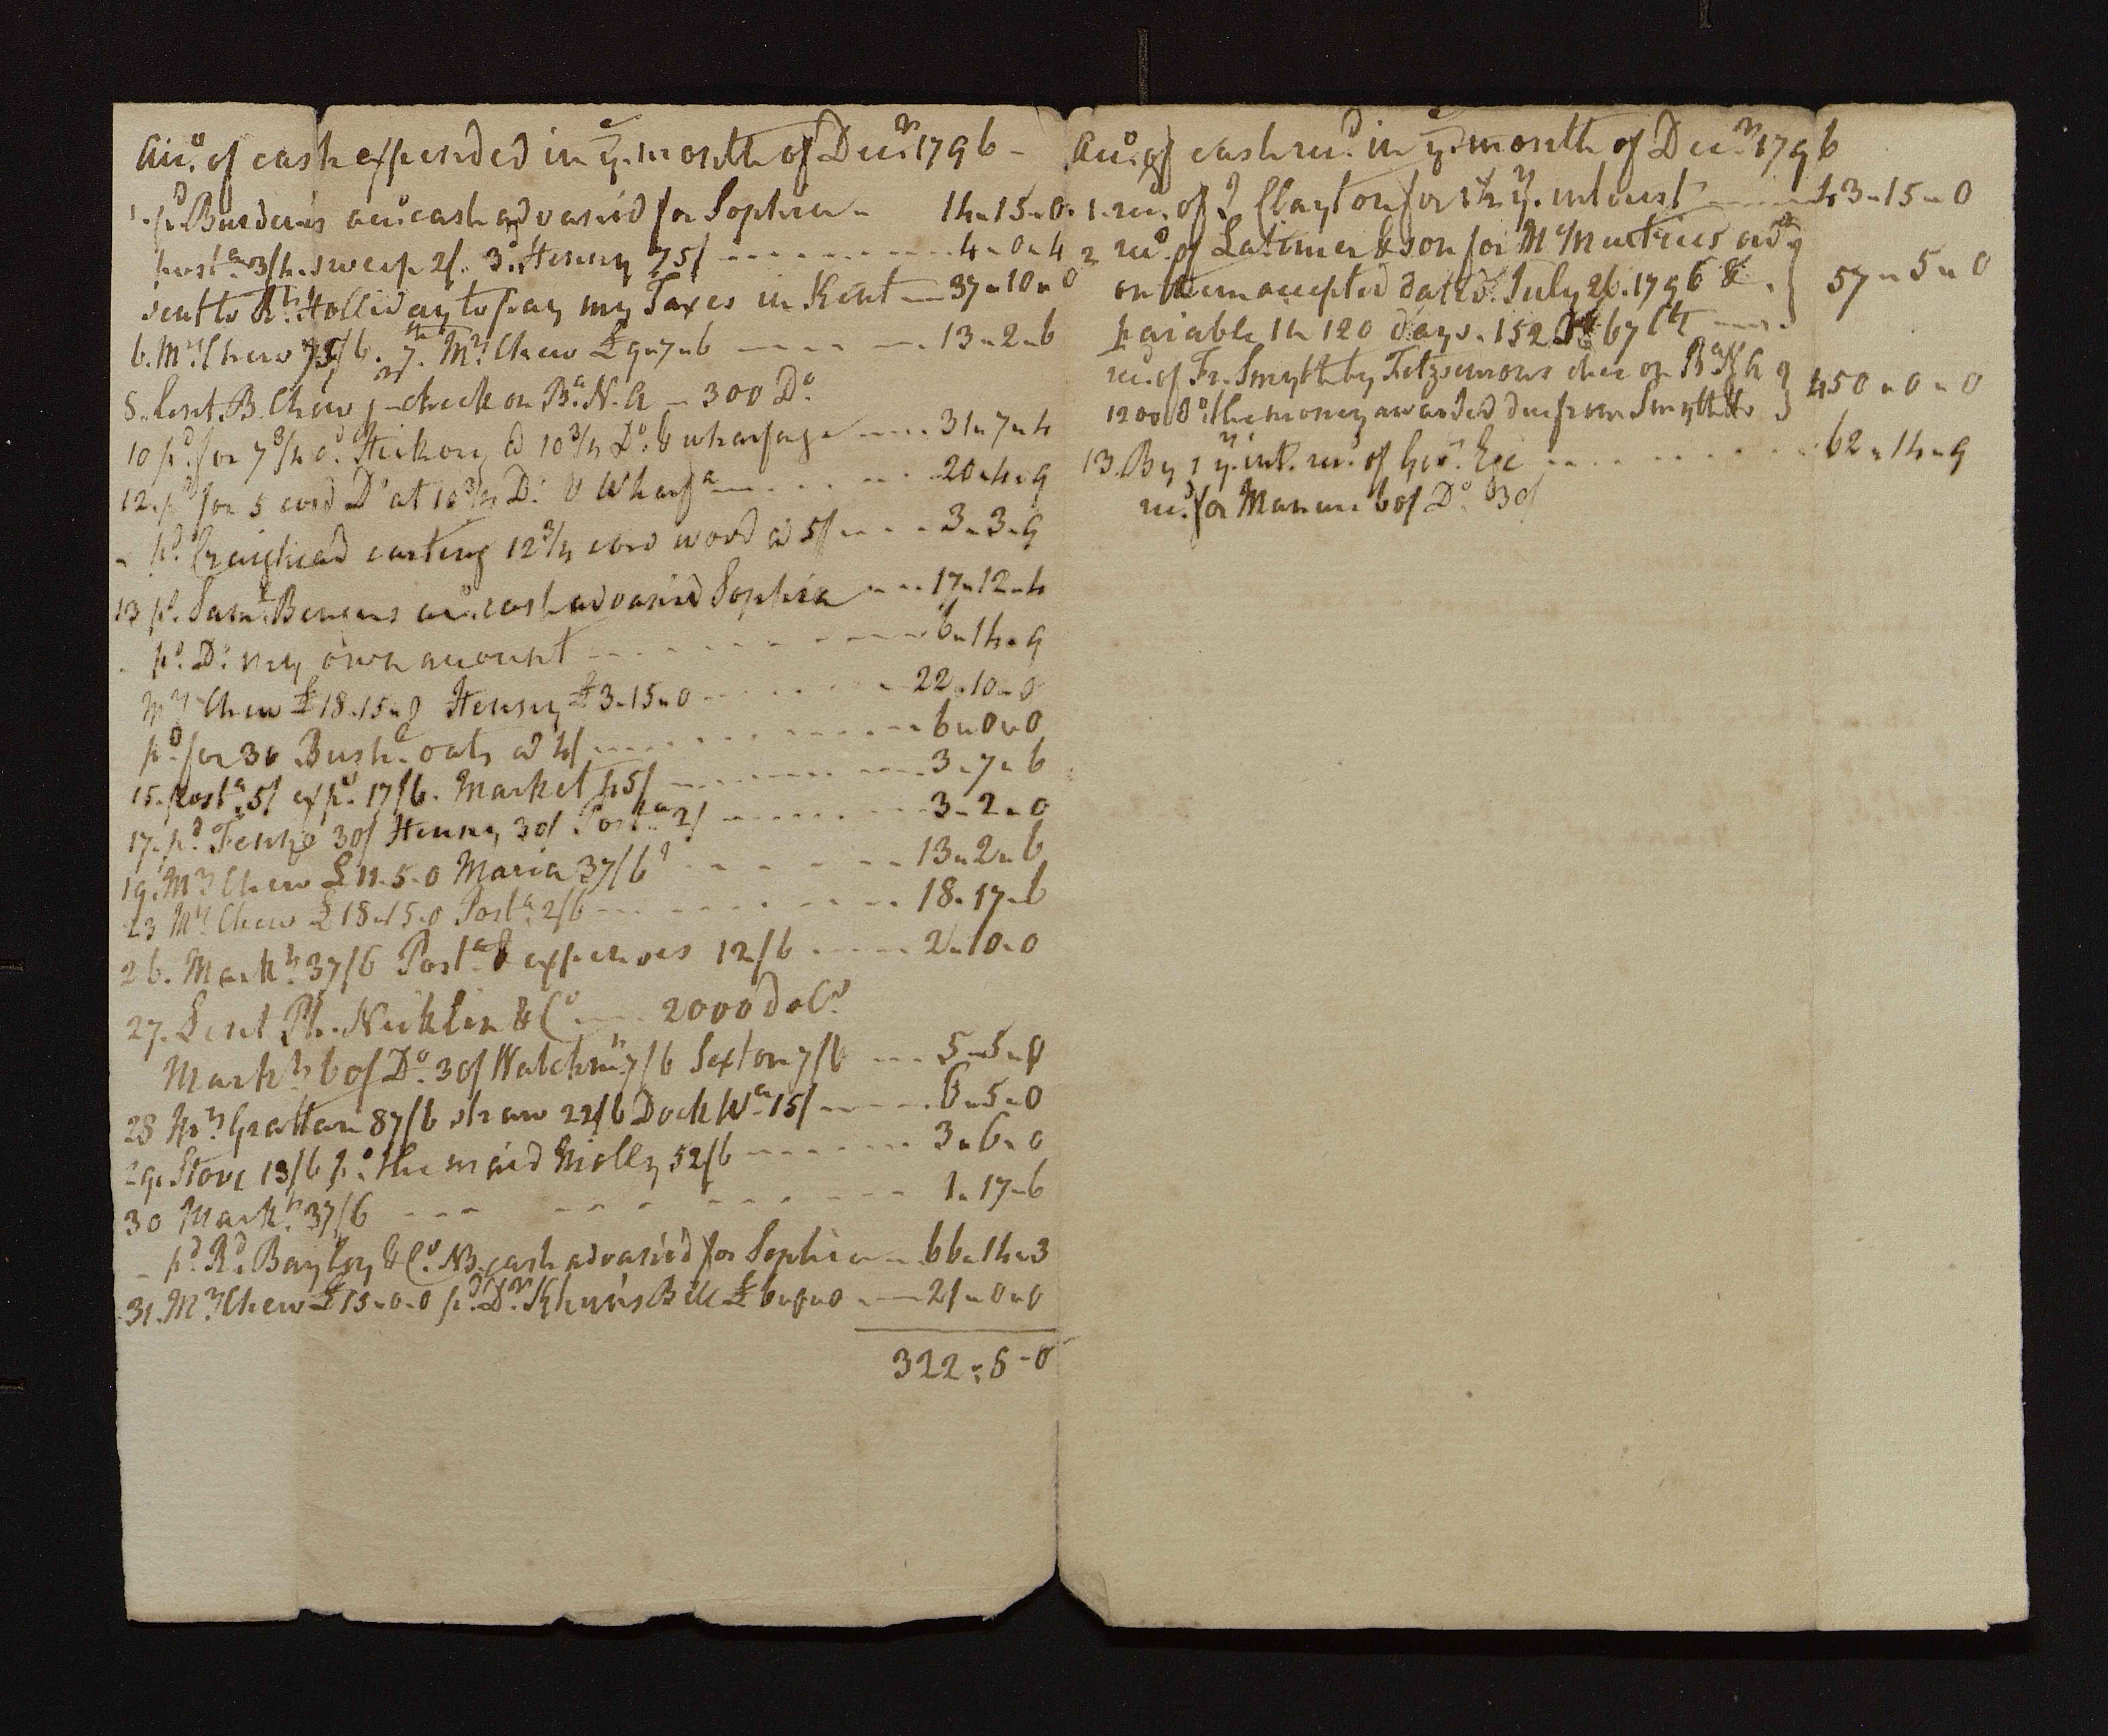 Accᵒ. of cash expended in yᵉ. month of Decʳ. 1796 -
1. pᵈ Burden's accᵒ cash advanc'd for Sophia - 14 " 15 " 0
postᵃ. 3/4. sweep 2/. 3ᵈ. Henny 75/ - - - - 4 " 0 " 4
sent to Rᵗ. Holliday to pay my Taxes in Kent - 37 " 10 " 0
6. Mʳˢ Chew 75/6. 7ᵗʰ. Mʳˢ Chew £9 " 7 " 6 - - - - 13 " 2 " 6
8. lent B. Chew jʳ check on Bᵃ. N. A - 300 Dᵒ.
10 pᵈ. for 7 3/4 cᵈ. Hickory @ 10 3/4 Dᵒ. & wharfage - - - 31 " 7 " 4
12. pᵈ for 5 cord Dᵒ at 10 3/4 Dᵒ. & Wharfᵃ - - - 20 " 4 " 9
- pᵈ. Craighead carting 12 3/4 cord wood @ 5/ - - - 3 " 3 " 9
13 pᵈ. Samˡ. accᵒ. cash advanc'd Sophia - - - 17 " 12 " 4
- pᵈ. Dᵒ. my own account - - - - 6 " 14 " 9
Mʳˢ Chew £18 " 15 " 0 Henny £3 " 15 " 0 - - - - 22 " 10 " 0
pᵈ for 30 Bushˢ. oats @ 4/ - - - - 6 " 0 " 0
15. postᵃ. 5/ expˢ. 17/6. Market 45/ - - - - 3 " 7 " 6
17. pᵈ. 30/ Henny 30/ Postᵃ 2/ - - - - 3 " 2 " 0
19. Mʳˢ Chew £11 " 5 " 0 Maria 37/6 - - - - 13 " 2 " 6
23 Mʳˢ Chew £18 " 15 " 0 Postᵃ. 2/6 - - - - 18 " 17 " 6
26. Markᵗ. 37/6 Postᵃ & expences 12/6 - - - - 2 " 10 " 0
27. Lent Ph. Nicklin & Cᵒ - - - 2000 dolˢ.
Markᵗ. 60/ Dᵒ. 30/ Watchmⁿ 7/6 Sexton 7/6 - - - 5 " 5 " 0
28 Mʳˢ. Grattan 87/6 straw 22/6 Dock Wᵃ. 15/ - - - 6 " 5 " 0
29. Stove 13/6 pᵈ. the maid Molly 52/6 - - - - 3 " 6 " 0
30 Markᵗ. 37/6 - - - - 1 " 17 " 6
- pᵈ. Rᵈ. Bayley & Cᵒ. NB. cash advanc'd for Sophia - 66 " 14 " 3
31. Mʳˢ Chew £15 " 0 " 0 pᵈ. Dʳ. Khun's Bill £6 " 0 " 0 - - 21 " 0 " 0
322 " 8 - 0
Accᵒ. of cash recᵈ. in yᵉ. month of Decʳ. 1796
1. recᵈ. of J Clayton for interest - - - 43 " 15 " 0
2 recᵈ. of Latimer & son for McMurtries ordʳ
on them accepted dated July 26. 1796 & 57 " 5 " 0
paiable in 120 days. 152 67 Cᵗˢ - - -
recᵈ. of Fr. Smyth by Fitzsimons chec on Bᵃ N A 450 " 0 " 0
1200 Dᵒ. the money awarded due from Smyth &c
13. By 1 yʳˢ. intᵗ. recᵈ. of Geoᵉ. Ege - - - - 62 " 14 " 9
recᵈ. for Manure 60/ Dᵒ. 30/